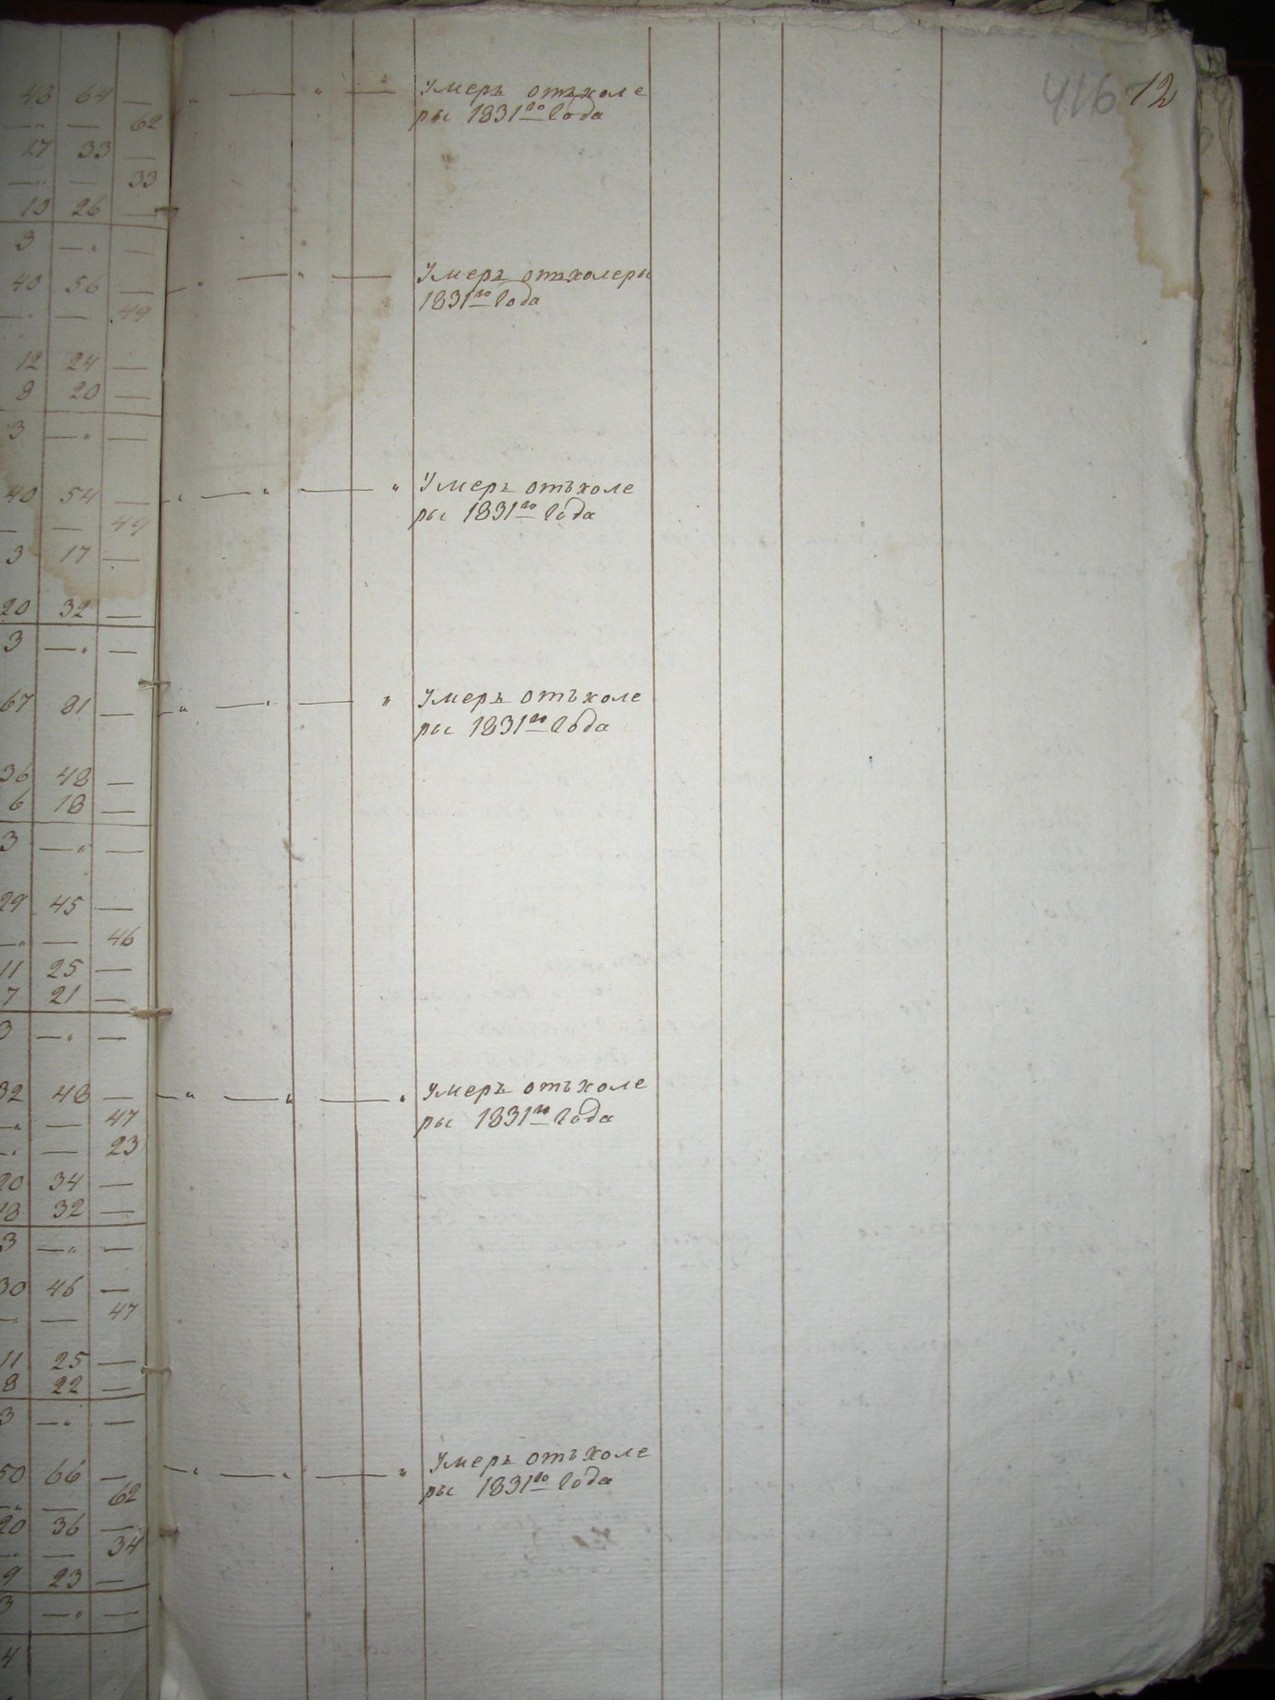 416 12
43 64 —
— — 62
17 33 —
— — 33
10 26 —
3 — —
40 56 —
— — 49
12 24 —
8 20 —
3 — —
40 54 —
— — 49
3 17 —
20 32 —
3 — —
67 81 —
36 48 —
6 18 —
3 — —
29 45 —
— — 46
11 25 —
7 21 —
3 — —
32 48 —
— — 47
— — 23
20 34 —
18 32 —
3 — —
30 46 —
— — 47
11 25 —
8 22 —
3 — —
50 66 —
— — 62
20 36 —
— — 34
9 23 —
3 — —
4
Умеръ отъ холе
ры 1831го Года
Умеръ отъ холеры
1831го Года
Умеръ отъ холе
ры 1831го Года
Умеръ отъ холе
ры 1831го Года
Умеръ отъ холе
ры 1831го Года
Умеръ отъ холе
ры 1831го Года